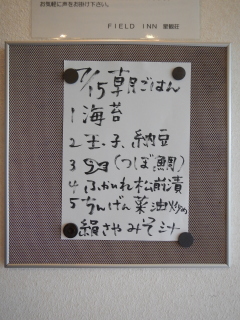 お気軽に声をお掛け下さい。
FIELD INN 翠観荘
7/15 朝ごはん
1 海苔
2 玉子、納豆
3 (つぼ鯛)
4 ふかひれ松前漬
5 ちんげん菜油炒め
絹さやみそ汁